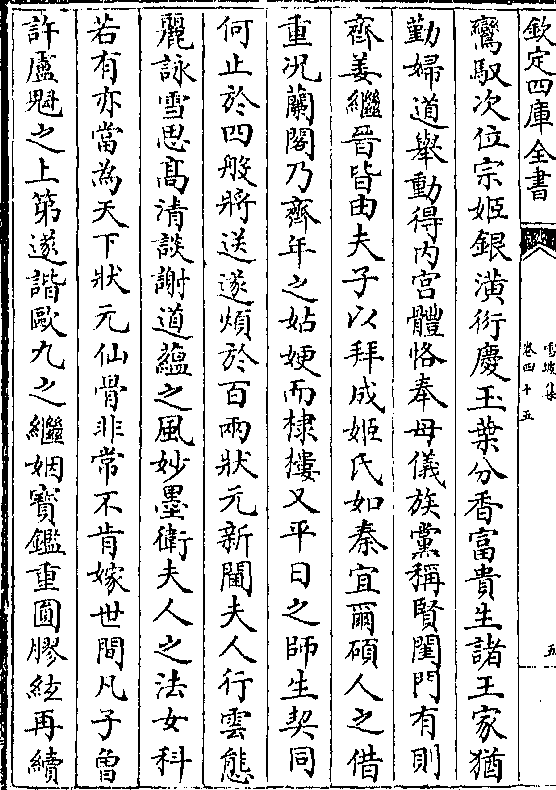 欽定四庫全書
雪坡集
卷四十五
五
鸞馭次位宗姬銀潢衍慶玉葉分香富貴生諸王家猶
勤婦道舉動得内宫體恪奉母儀族黨稱賢閨門有則
齊姜繼晉皆由夫子以拜成姬氏如秦宜爾碩人之借
重况蘭閣乃齊年之姑㛐而棣樓又平日之師生契同
何止於四般將送遂煩於百兩狀元新閫夫人行雲態
麗詠雪思髙清談謝道蘊之風妙墨衛夫人之法女科
若有亦當為天下狀元仙骨非常不肯嫁世間凡子曾
許盧魁之上第遂諧歐九之繼姻寳鑑重圓膠絃再續